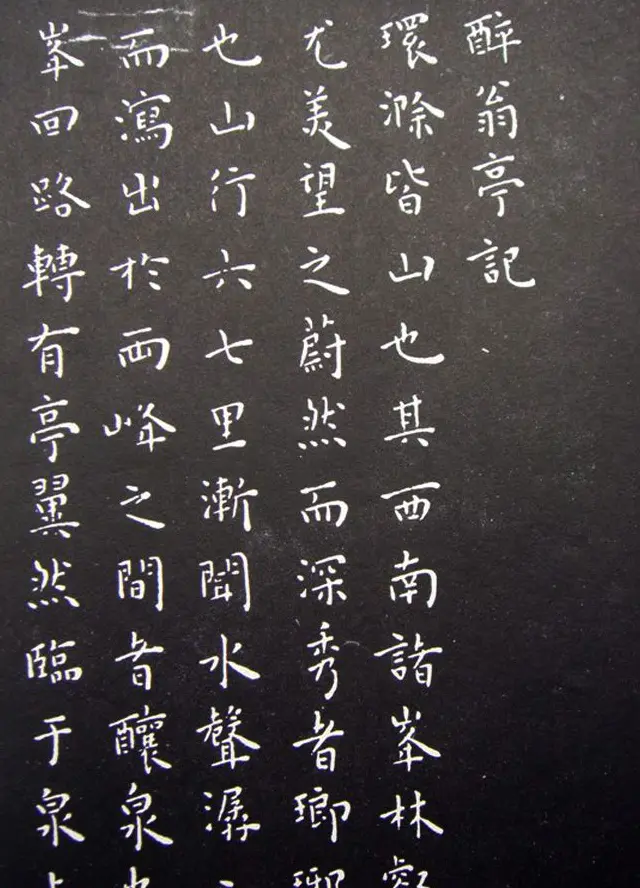 醉翁亭記
環滁皆山也其西南諸峯林壑
尤美望之蔚然而深秀者瑯琊
也山行六七里漸聞水聲潺
而瀉出於兩峰之間者釀泉也
峯回路轉有亭翼然臨于泉上